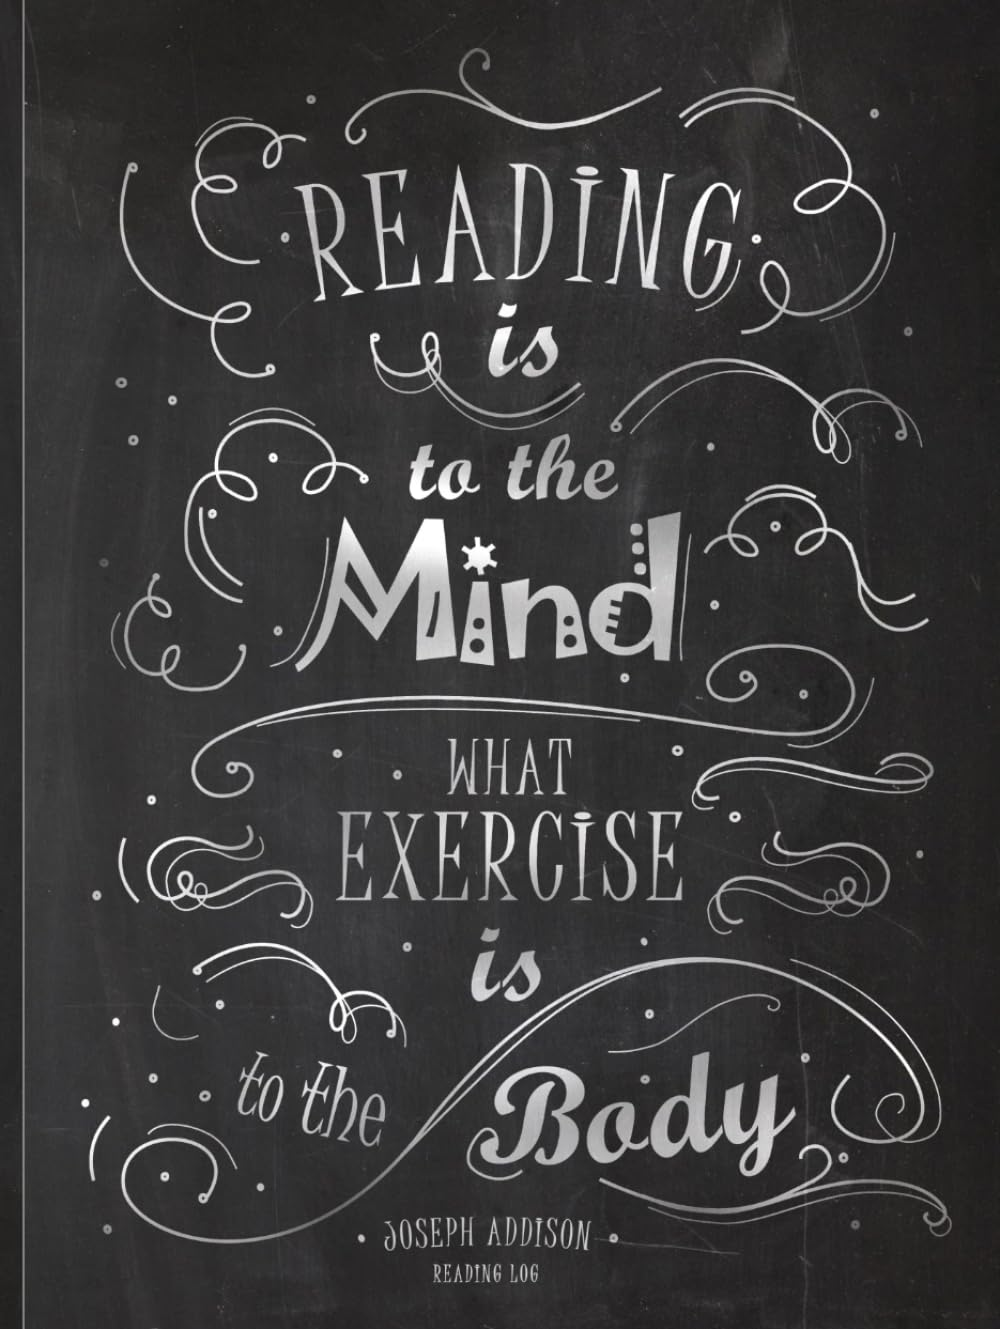 READING
is
to the
Mind
WHAT
EXERCISE
is
to the Body
JOSEPH ADDISON
READING LOG